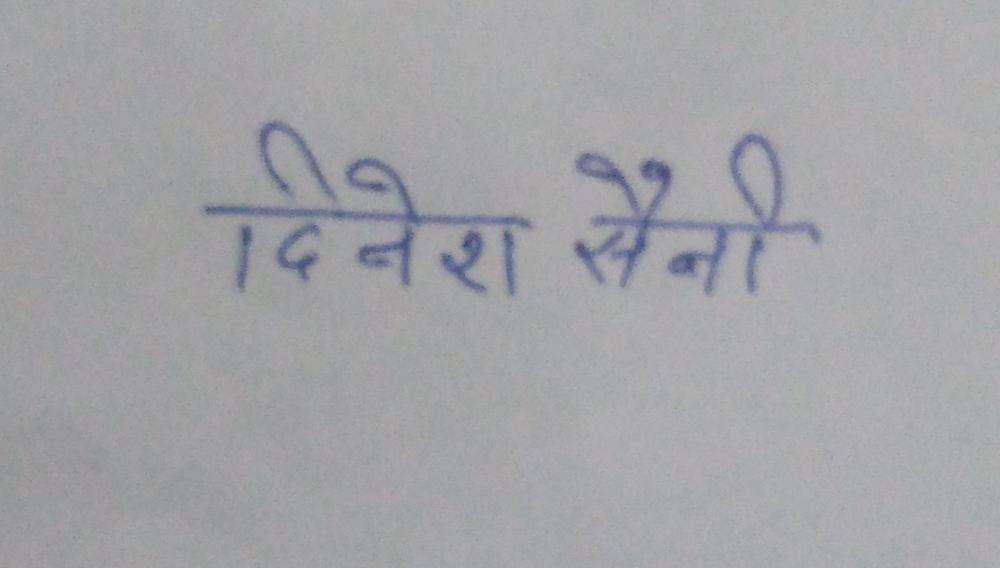 दिनेश सैनी